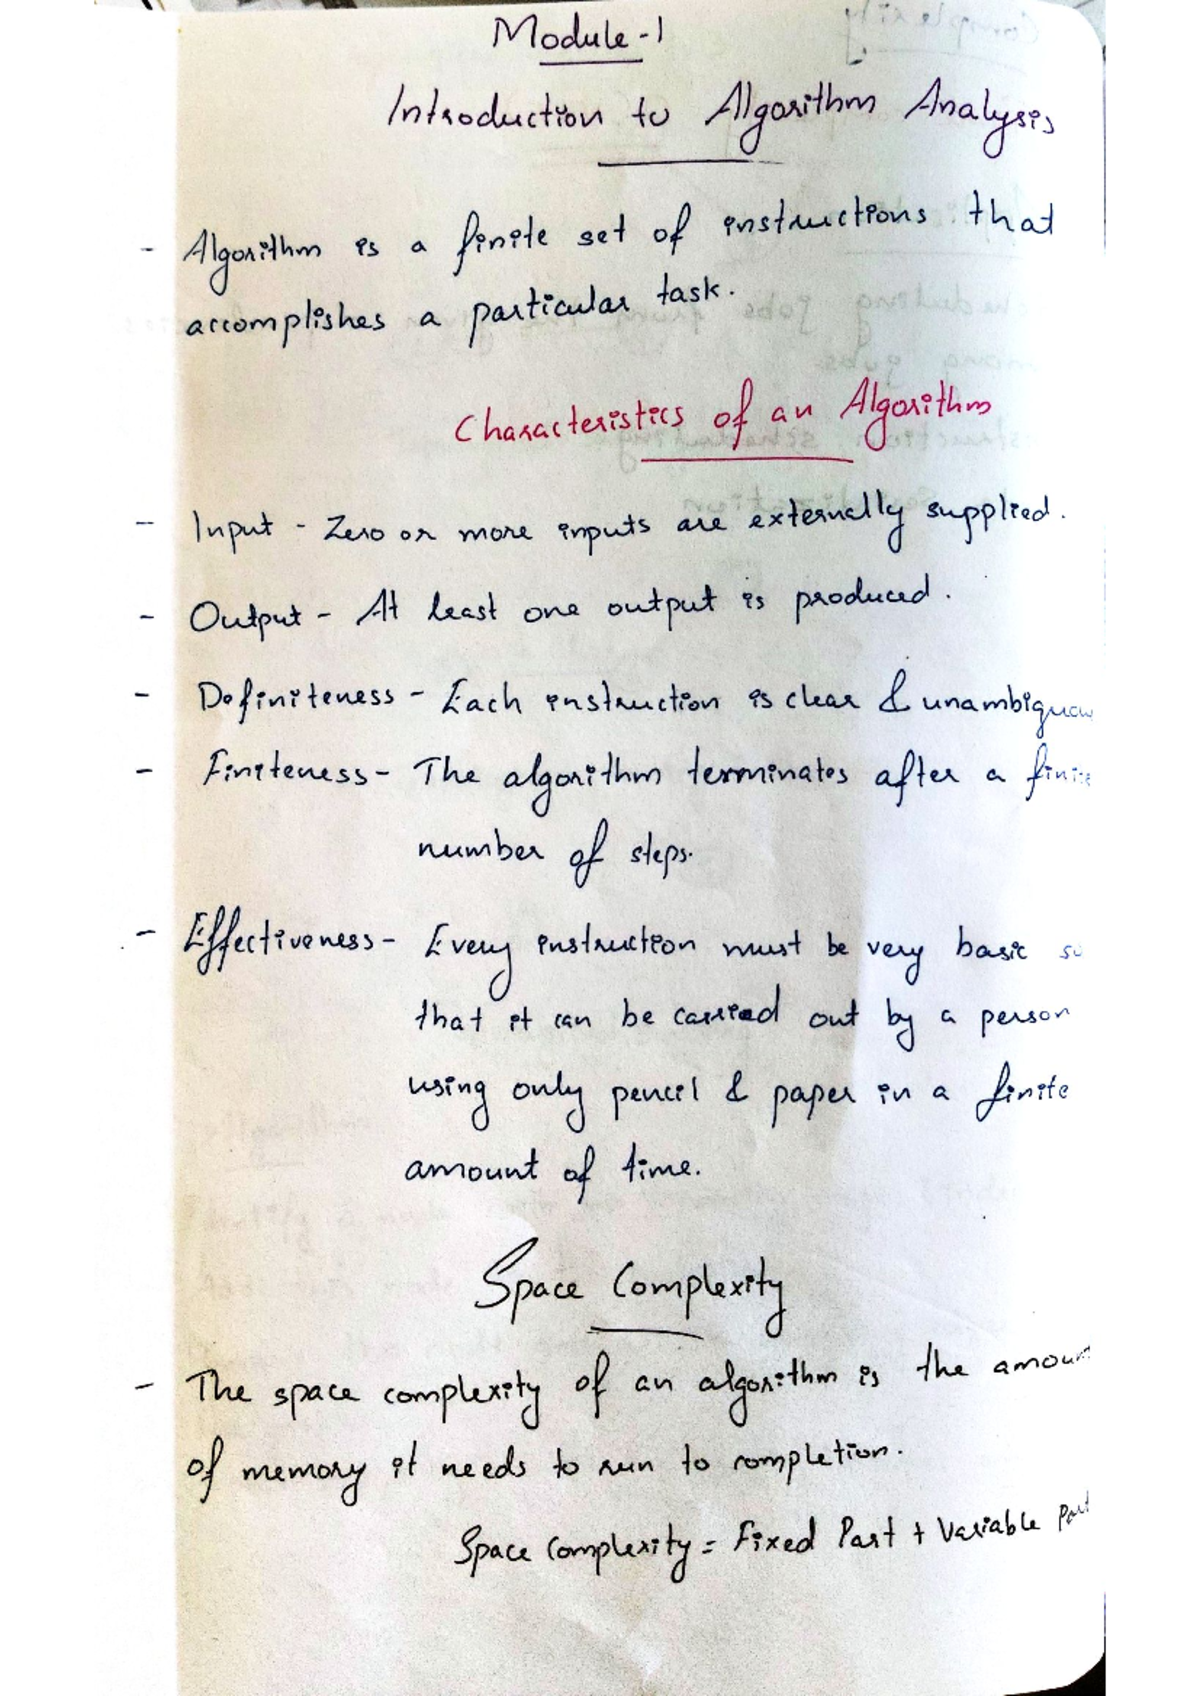 Module-1
Introduction to Algorithm Analysis
- Algorithm is a finite set of instructions that
accomplishes a particular task.
Characteristics of an Algorithm
- Input - Zero or more inputs are externally supplied.
- Output - At least one output is produced.
- Definiteness - Each instruction is clear & unambiguou
- Finiteness - The algorithm terminates after a finite
number of steps.
- Effectiveness - Every instruction must be very basic so
that it can be carried out by a person
using only pencil & paper in a finite
amount of time.
Space Complexity
- The space complexity of an algorithm is the amoun
of memory it needs to run to completion.
Space Complexity = Fixed Part + Variable Part